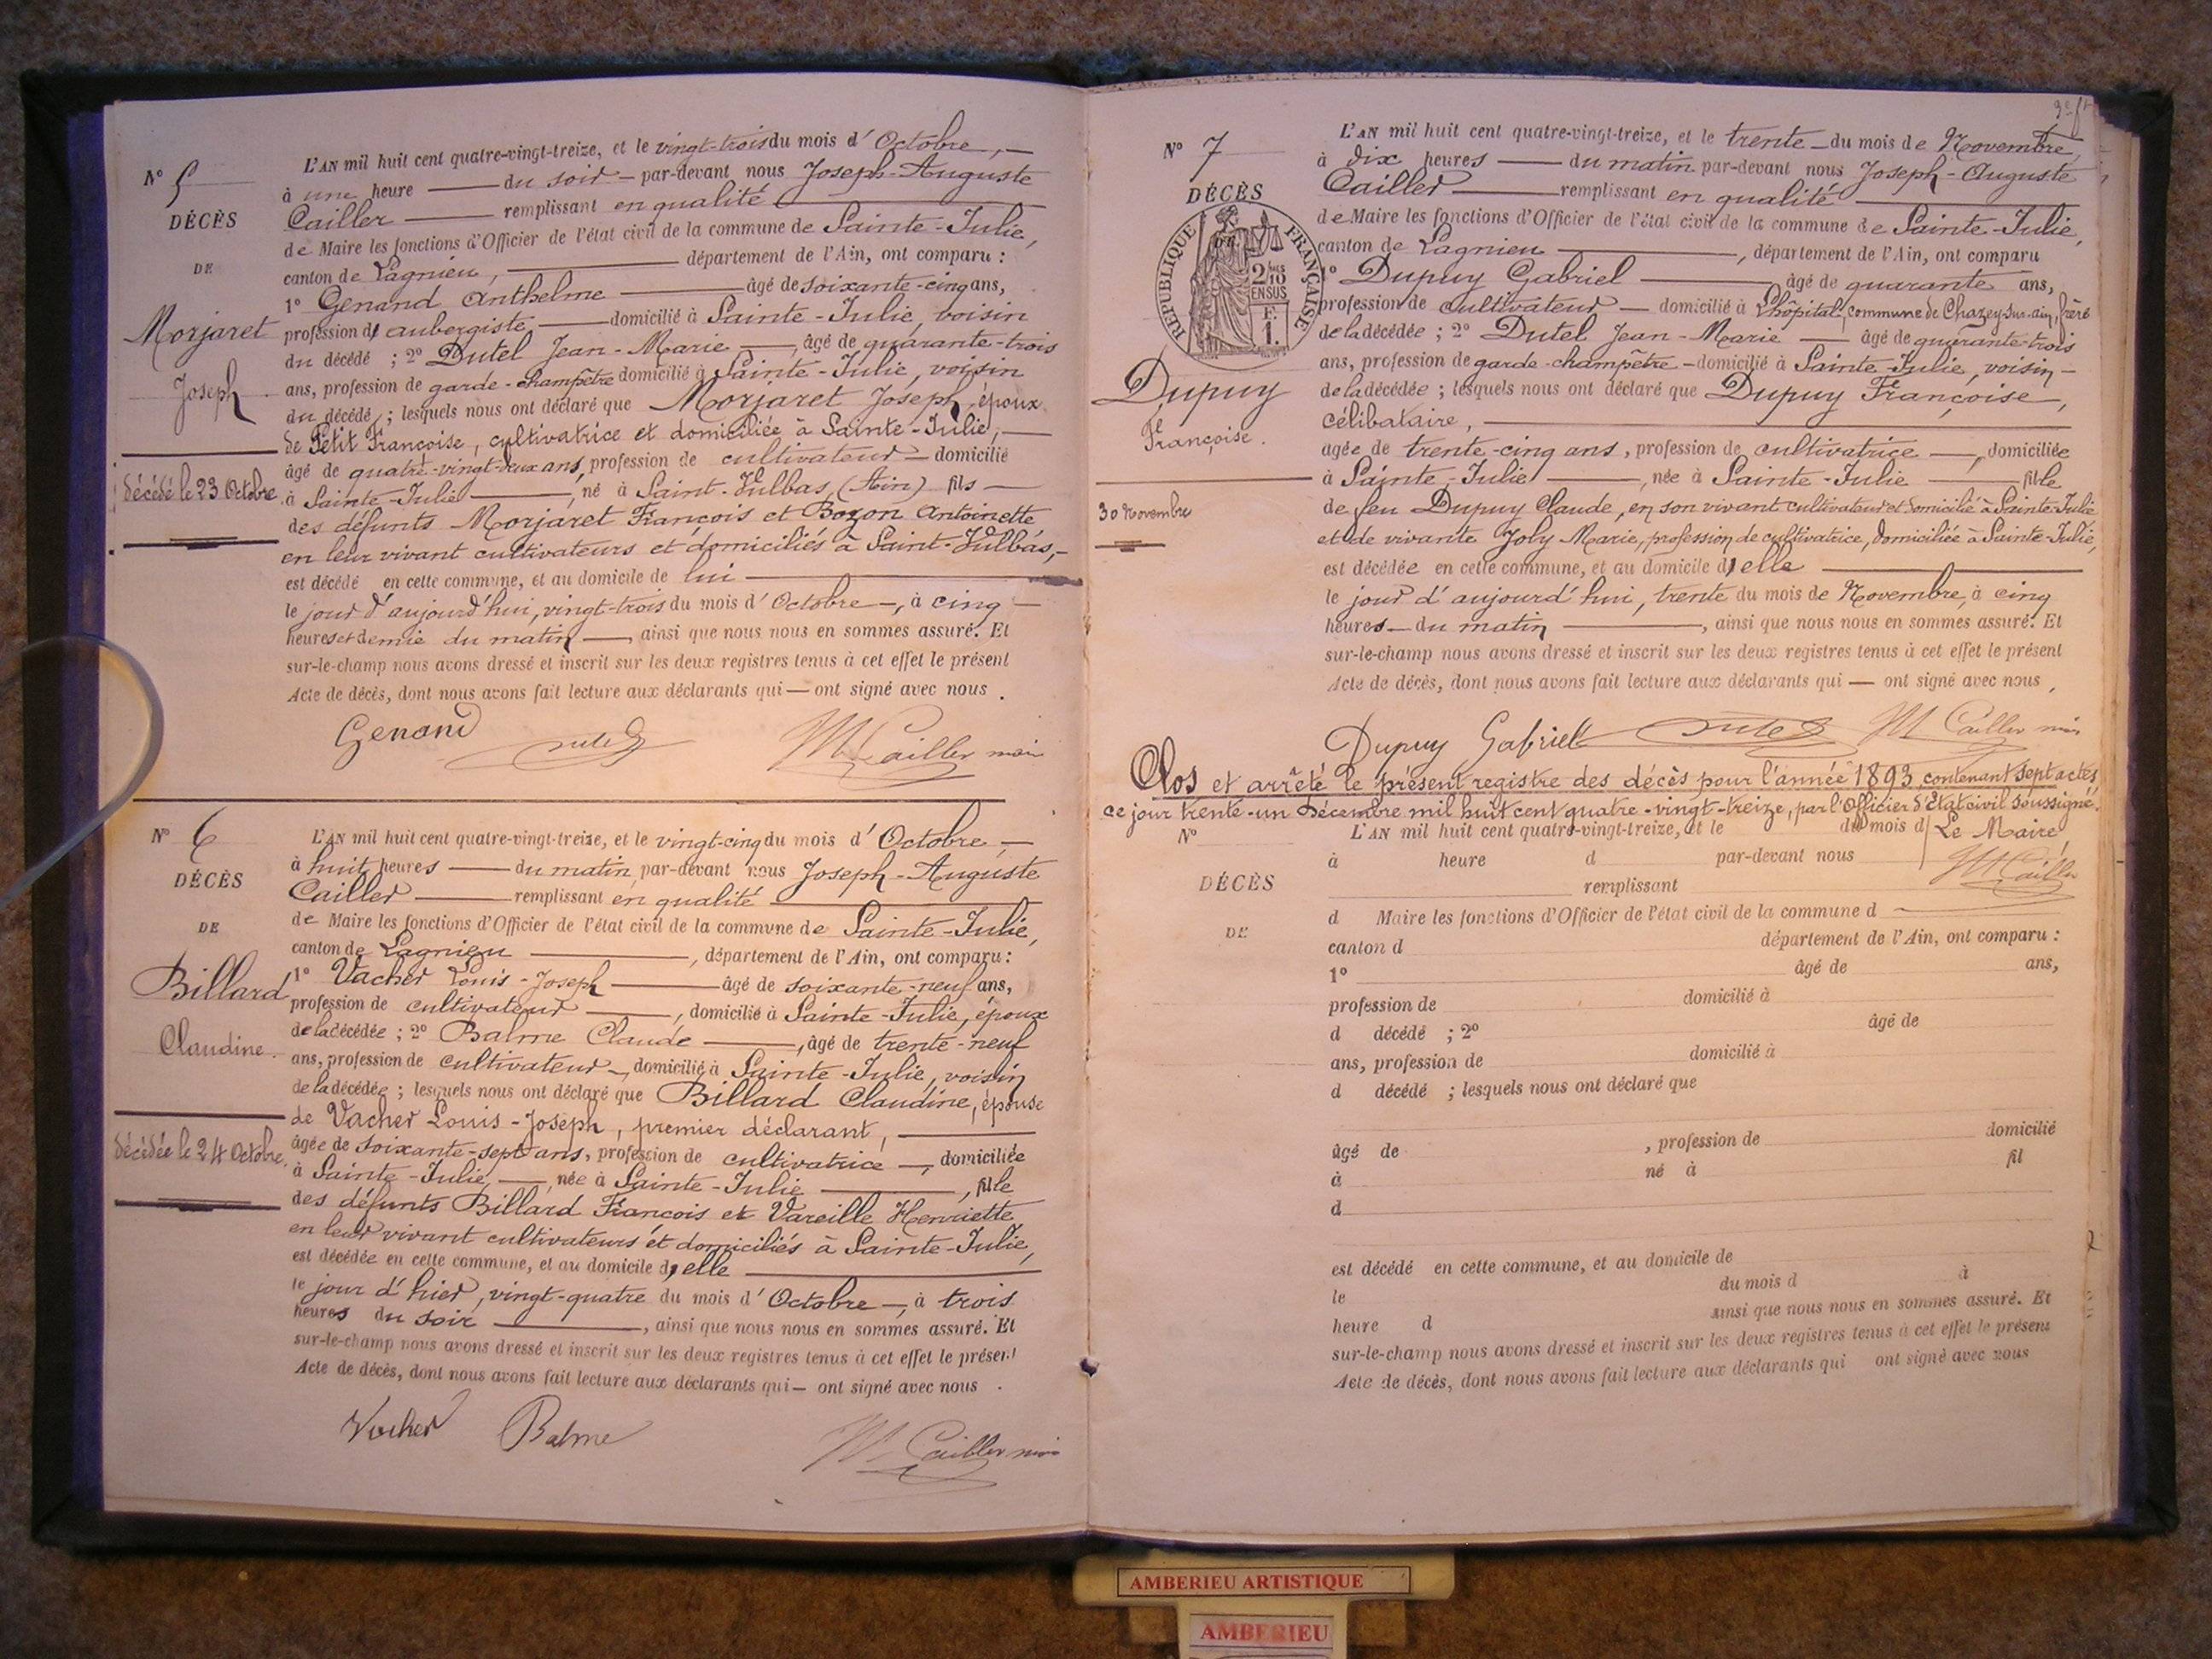 N° 5
DÉCÈS
DE
Morjaret
Joseph
décédé le 23 Octobre
L'AN mil huit cent quatre-vingt-treize, et le vingt-trois du mois d'Octobre,
à une heure du soir par-devant nous Joseph-Auguste
Cailler remplissant en qualité
de Maire les fonctions d'Officier de l'état civil de la commune de Sainte-Julie,
canton de Lagnieu, département de l'Ain, ont comparu :
1° Genand Anthelme âgé de soixante-cinq ans,
profession d'aubergiste, domicilié à Sainte-Julie, voisin
du décédé ; 2° Dutel Jean-Marie, âgé de quarante-trois
ans, profession de garde-champêtre domicilié à Sainte-Julie, voisin
du décédé ; lesquels nous ont déclaré que Morjaret Joseph, époux
de Petit Françoise, cultivatrice et domiciliée à Sainte-Julie,
âgé de quatre-vingt-deux ans, profession de cultivateur domicilié
à Sainte-Julie, né à Saint-Vulbas, (Ain) fils
des défunts Morjaret François et Bozon Antoinette
en leur vivant cultivateurs et domiciliés à Saint-Vulbas,
est décédé en cette commune, et au domicile de lui
le jour d'aujourd'hui, vingt-trois du mois d'Octobre, à cinq
heures et demie du matin, ainsi que nous nous en sommes assuré. Et
sur-le-champ nous avons dressé et inscrit sur les deux registres tenus à cet effet le présent
Acte de décès, dont nous avons fait lecture aux déclarants qui — ont signé avec nous.
Genand Dutel M Cailler maire
N° 6
DÉCÈS
DE
Billard
Claudine.
décédée le 24 Octobre.
L'AN mil huit cent quatre-vingt-treize, et le vingt-cinq du mois d'Octobre,
à huit heures du matin, par-devant nous Joseph-Auguste
Cailler remplissant en qualité
de Maire les fonctions d'Officier de l'état civil de la commune de Sainte-Julie,
canton de Lagnieu, département de l'Ain, ont comparu :
1° Vacher Louis-Joseph âgé de soixante-neuf ans,
profession de cultivateur, domicilié à Sainte-Julie, époux
de la décédée ; 2° Balme Claude, âgé de trente-neuf
ans, profession de cultivateur, domicilié à Sainte-Julie, voisin
de la décédée ; lesquels nous ont déclaré que Billard Claudine, épouse
de Vacher Louis-Joseph, premier déclarant,
âgée de soixante-sept ans, profession de cultivatrice, domiciliée
à Sainte-Julie, née à Sainte-Julie, fille
des défunts Billard François et Vareille Henriette
en leur vivant cultivateurs et domiciliés à Sainte-Julie,
est décédée en cette commune, et au domicile d'elle
le jour d'hier, vingt-quatre du mois d'Octobre, à trois
heures du soir, ainsi que nous nous en sommes assuré. Et
sur-le-champ nous avons dressé et inscrit sur les deux registres tenus à cet effet le présent
Acte de décès, dont nous avons fait lecture aux déclarants qui — ont signé avec nous.
Vacher Balme M Cailler maire
N° 7
DÉCÈS
DE
RÉPUBLIQUE FRANÇAISE
2/10 EN SUS
F. 1.
Dupuy
Françoise.
30 Novembre
L'AN mil huit cent quatre-vingt-treize, et le trente du mois de Novembre
à dix heures du matin par-devant nous Joseph-Auguste
Cailler remplissant en qualité
de Maire les fonctions d'Officier de l'état civil de la commune de Sainte-Julie,
canton de Lagnieu, département de l'Ain, ont comparu
1° Dupuy Gabriel âgé de quarante ans,
profession de cultivateur domicilié à L'hôpital, commune de Chazey-sur-ain, frère
de la décédée ; 2° Dutel Jean-Marie âgé de quarante-trois
ans, profession de garde-champêtre domicilié à Sainte-Julie, voisin
de la décédée ; lesquels nous ont déclaré que Dupuy Françoise,
célibataire,
agée de trente-cinq ans, profession de cultivatrice, domiciliée
à Sainte-Julie, née à Sainte-Julie fille
de feu Dupuy Claude, en son vivant cultivateur et domicilié à Sainte-Julie
et de vivante Joly Marie, profession de cultivatrice, domiciliée à Sainte-Julie,
est décédée en cette commune, et au domicile d'elle
le jour d'aujourd'hui, trente du mois de Novembre, à cinq
heures du matin, ainsi que nous nous en sommes assuré. Et
sur-le-champ nous avons dressé et inscrit sur les deux registres tenus à cet effet le présent
Acte de décès, dont nous avons fait lecture aux déclarants qui — ont signé avec nous,
Dupuy Gabriel Dutel M Cailler maire
Clos et arrêté le présent registre des décès pour l'année 1893, contenant sept actes
ce jour trente-un Décembre mil huit cent quatre-vingt-treize, par l'Officier d'Etat civil soussigné.
Le Maire
M Cailler
N°
DÉCÈS
DE
L'AN mil huit cent quatre-vingt-treize, et le du mois d
à heure d par-devant nous
remplissant
d Maire les fonctions d'Officier de l'état civil de la commune d
canton d département de l'Ain, ont comparu :
1° âgé de ans,
profession de domicilié à
d décédé ; 2° âgé de
ans, profession de domicilié à
d décédé ; lesquels nous ont déclaré que
âgé de , profession de domicilié
à né à fil
d
est décédé en cette commune, et au domicile de
le du mois d à
heure d ainsi que nous nous en sommes assuré. Et
sur-le-champ nous avons dressé et inscrit sur les deux registres tenus à cet effet le présent
Acte de décès, dont nous avons fait lecture aux déclarants qui ont signé avec nous
AMBERIEU ARTISTIQUE
AMBERIEU